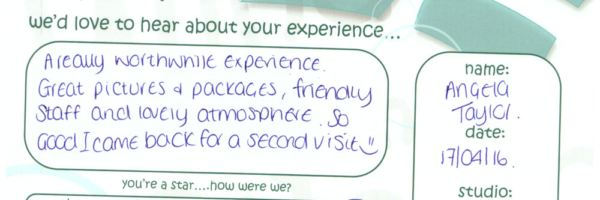 we'd love to hear about your experience...
A really worthwhile experience.
Great pictures & packages, friendly
Staff and lovely atmosphere. So
Good I came back for a second visit
name:
Angela
Taylor.
date:
17/04/16.
you're a star....how were we?
studio: